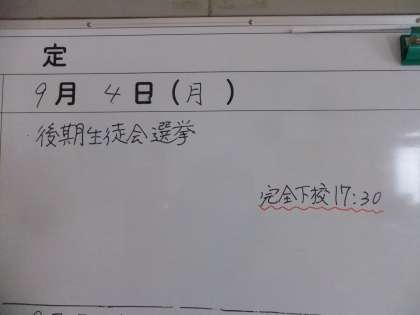 定
9月 4日(月)
・後期生徒会選挙
完全下校17:30